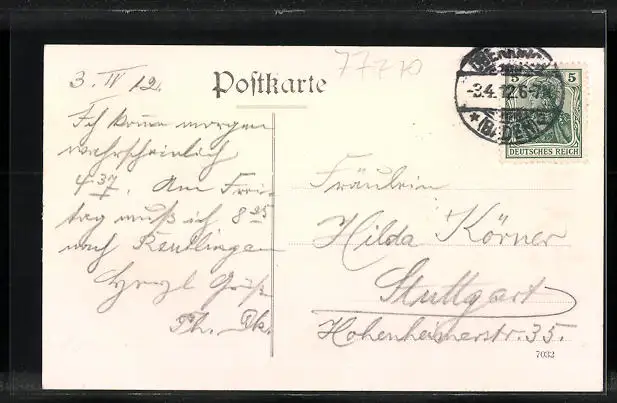 77770
Postkarte
3. IV 12.
Ich komme morgen
wahrscheinlich
4 37. Am Frei-
tag muß ich 8 25
nach Reutlingen
Herzl Gruß
Th. Dk.
-3.4.12.6-7
5 5
DEUTSCHES REICH
Fräulein
Hilda Körner
Stuttgart
Hohenheimerstr. 35.
7032